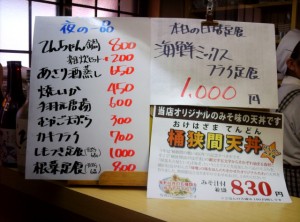 夜の一品
てんちゃん鍋 800
雑炊セット 200
あさり酒蒸し 650
焼いか 450
手羽元唐揚 600
むかごごぼう 300
カキフライ 700
しもつき定食 1000
根菜定食 800
本日の日替定食
海鮮ミックス
フライ定食
1,000円
当店オリジナルのみそ味の天丼です
おけはざま てんどん
桶狭間天丼
みそ汁付
830円